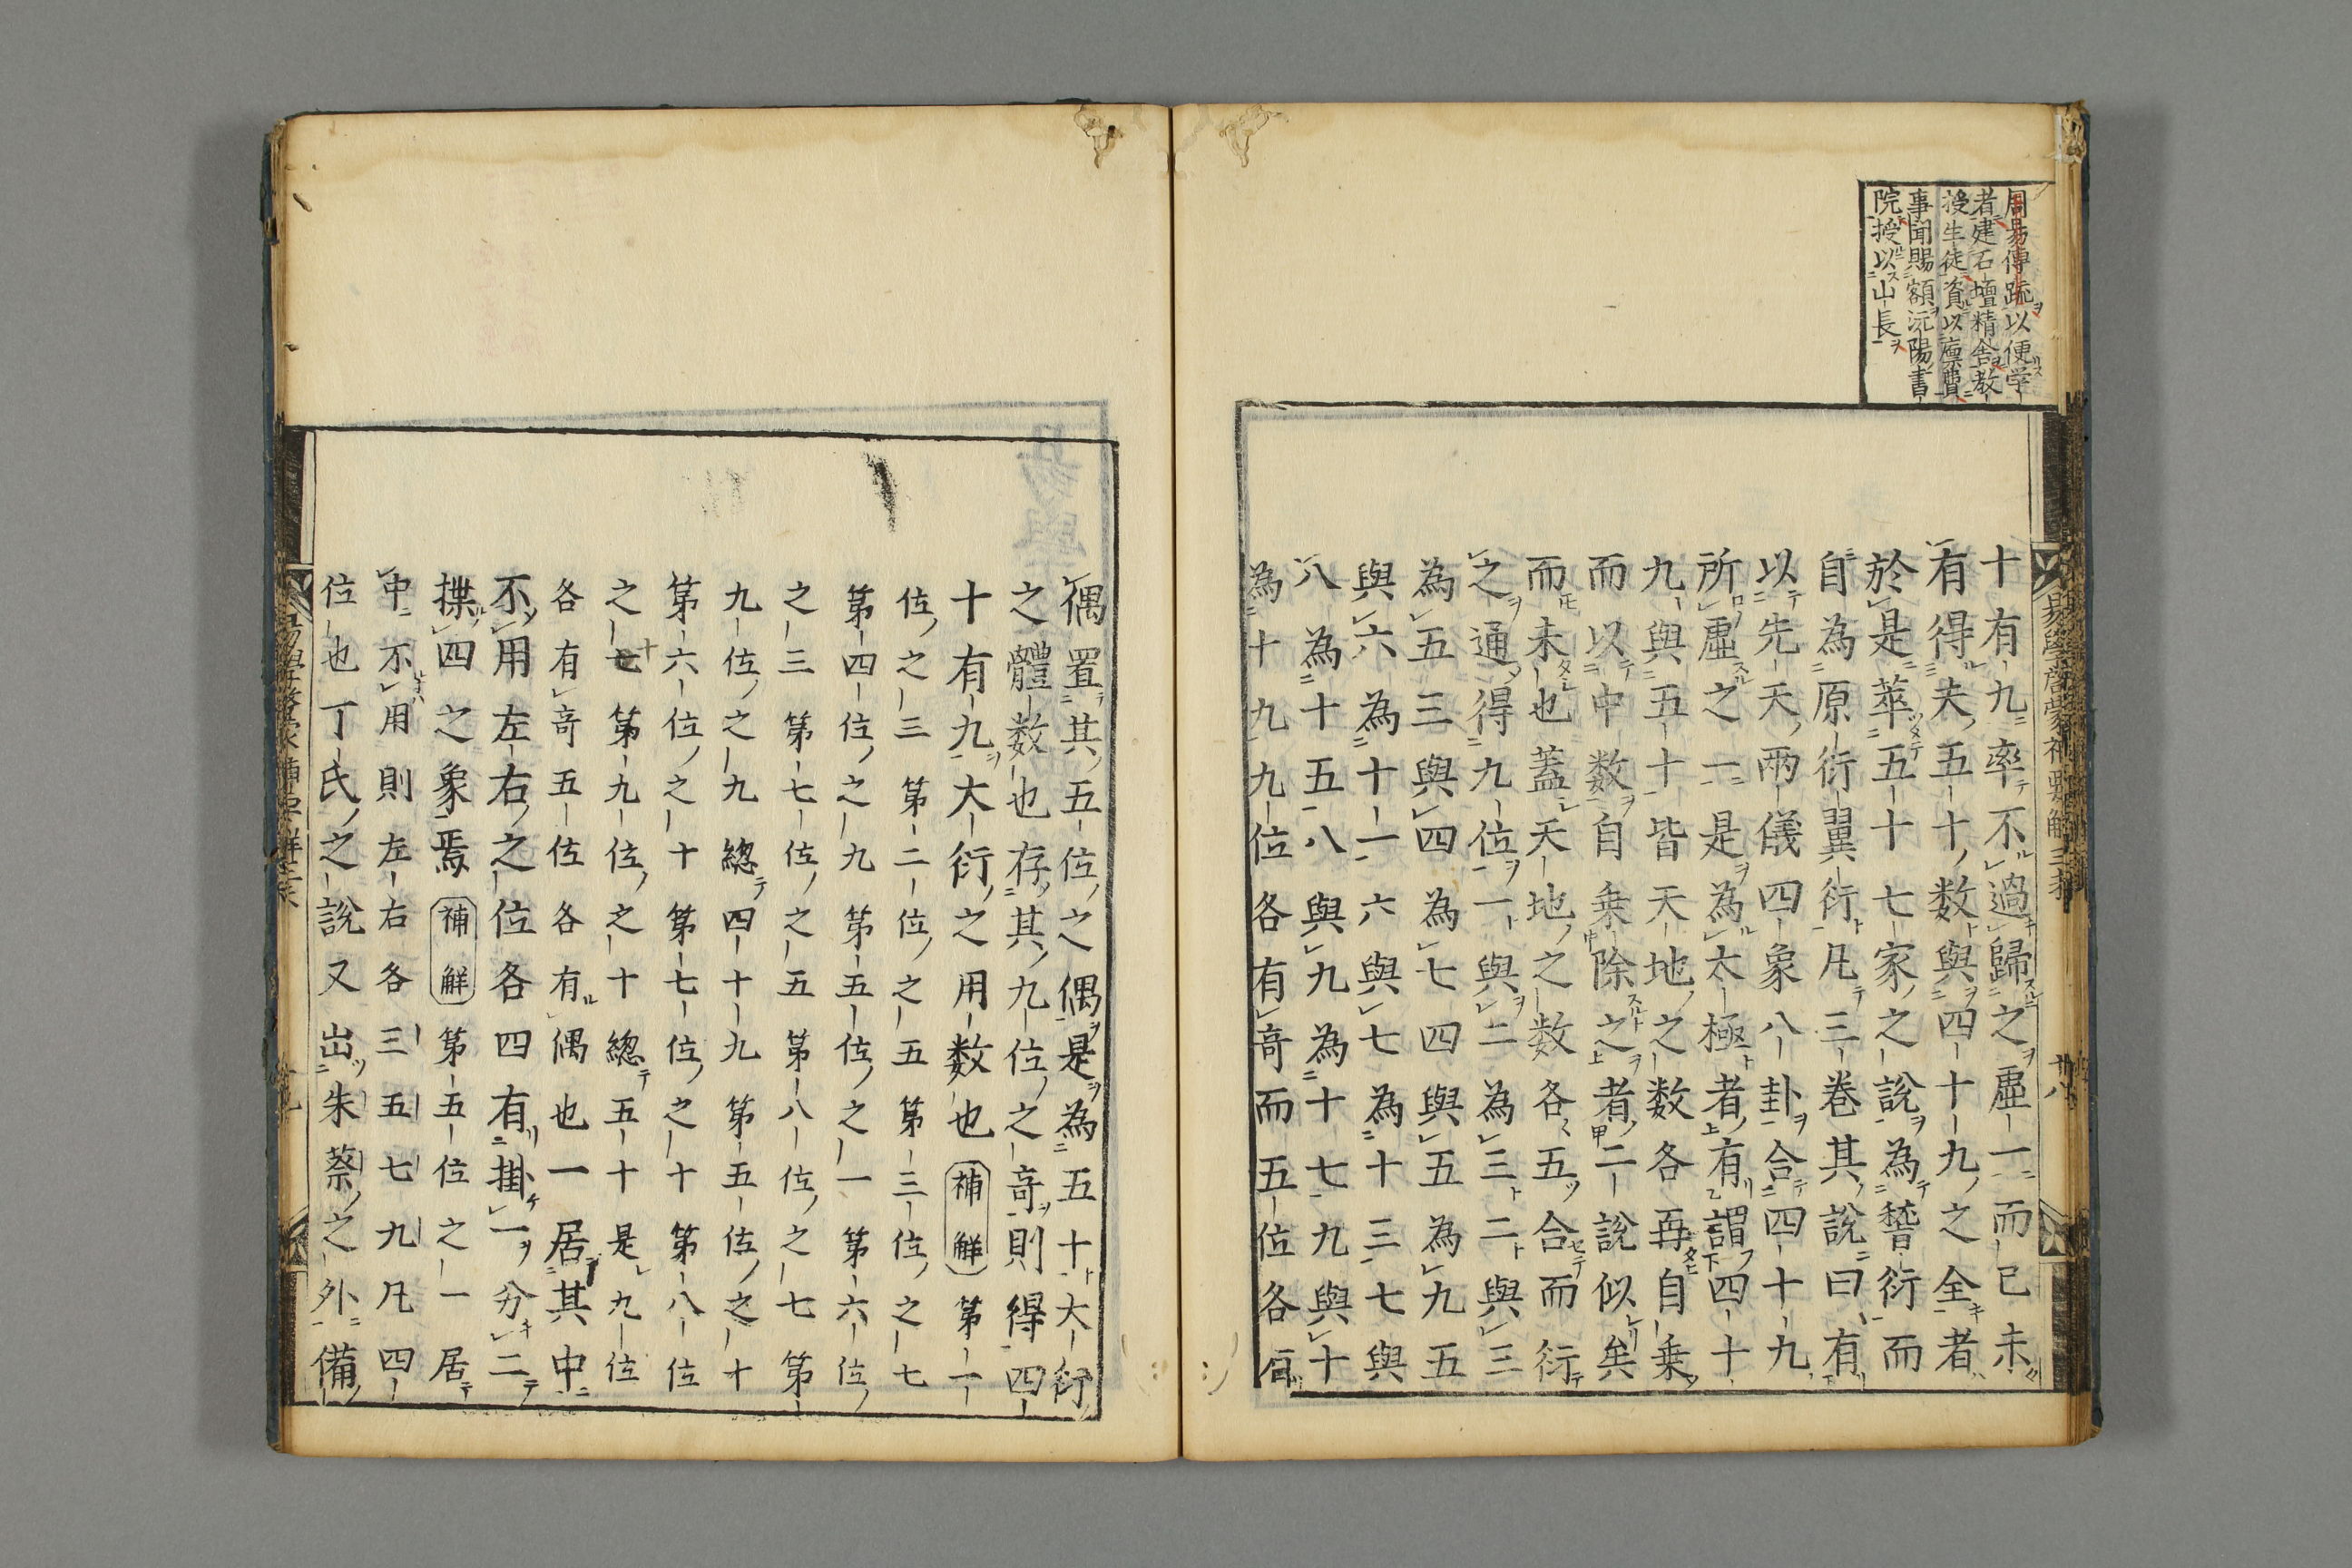 周易傳疏以便学
者建石壇精舎教
授生徒資以廪費
事聞賜額沅陽書
院授以山長
十有九率不過歸之虛一而已未
有得夫五十数與四十九之全者
於是萃五十七家之說為稽衍而
自為原衍翼衍凡三巻其說曰有
以先天兩儀四象八卦合四十九
所虛之一是為太極者有謂四十
九與五十皆天地之数各再自乗
而以中数自乗除之者二說似矣
而未也蓋天地之数各五合而衍
之通得九位一與二為三二與三
為五三與四為七四與五為九五
與六為十一六與七為十三七與
八為十五八與九為十七九與十
為十九九位各有竒而五位各有
偶置其五位之偶是為五十大衍
之體数也存其九位之竒則得四
十有九大衍之用数也補解第一
位之三第二位之五第三位之七
第四位之九第五位之一第六位
之三第七位之五第八位之七第
九位之九總四十九第五位之十
第六位之十第七位之十第八位
之十第九位之十總五十是九位
各有竒五位各有偶也一居其中
不用左右之位各四有掛一分二
揲四之象焉補解第五位之一居
中不用則左右各三五七九凡四
位也丁氏之說又出朱蔡之外備
易學啓蒙補要解三末
廿八